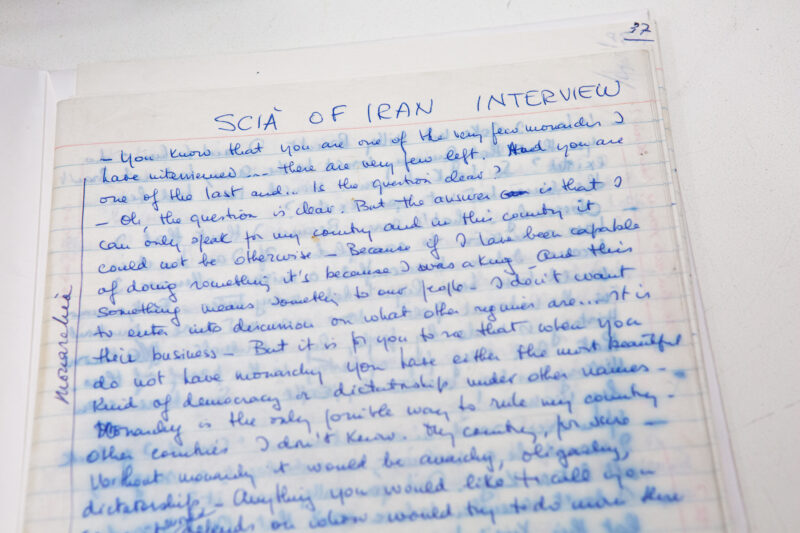 37
SCIÀ OF IRAN INTERVIEW
- You know that you are one of the very few monarchs I
have interviewed... there are very few left. And you are
one of the last and... Is the question clear?
- Oh, the question is clear. But the answer is that I
can only speak for my country and in this country it
could not be otherwise - Because if I have been capable
of doing something it's because I was a king - And this
something means something to our people - I don't want
to enter into discussion on what other regimes are... it is
their business - But it is for you to see that when you
do not have monarchy you have either the most beautiful
kind of democracy or dictatorship under other names -
Monarchy is the only possible way to rule my country -
Other countries I don't know. My country, for sure -
Without monarchy it would be anarchy, oligarchy,
dictatorship - Anything you would like to call you
depends on whom would try to do more there
Monarchia